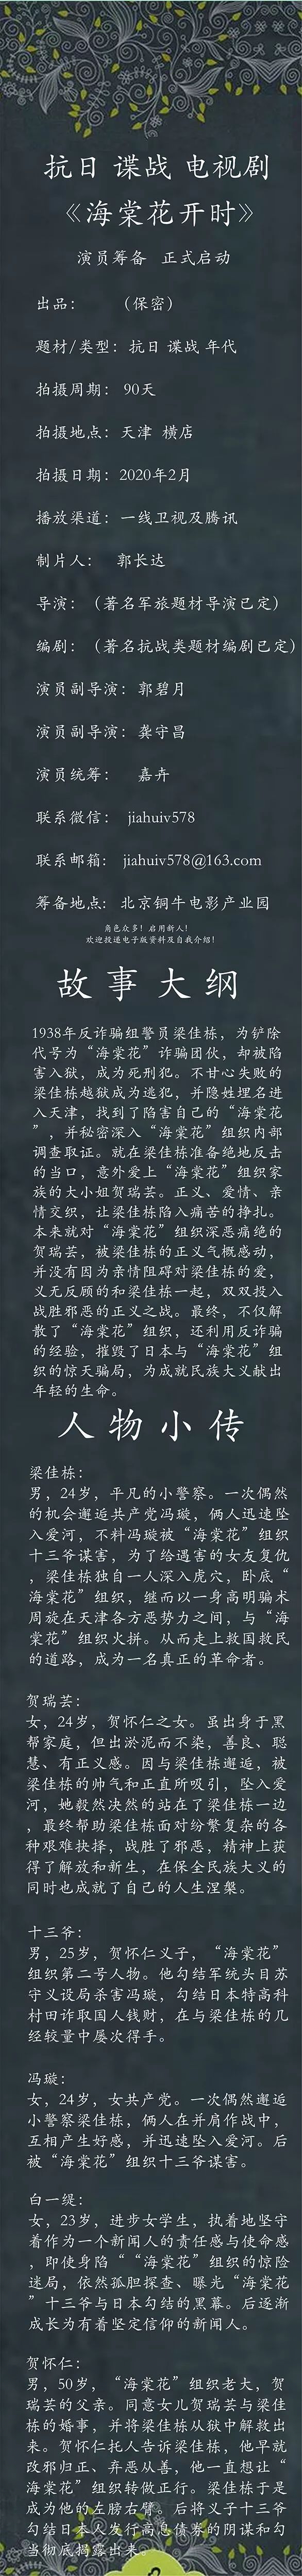 抗日 谍战 电视剧
《海棠花开时》
演员筹备 正式启动
出品： （保密）
题材/类型：抗日 谍战 年代
拍摄周期： 90天
拍摄地点：天津 横店
拍摄日期：2020年2月
播放渠道：一线卫视及腾讯
制片人： 郭长达
导演：（著名军旅题材导演已定）
编剧：（著名抗战类题材编剧已定）
演员副导演：郭碧月
演员副导演：龚守昌
演员统筹： 嘉卉
联系微信： jiahuiv578
联系邮箱： jiahuiv578@163.com
筹备地点：北京铜牛电影产业园
角色众多！启用新人！
欢迎投递电子版资料及自我介绍！
故事大纲
1938年反诈骗组警员梁佳栋，为铲除
代号为“海棠花”诈骗团伙，却被陷
害入狱，成为死刑犯。不甘心失败的
梁佳栋越狱成为逃犯，并隐姓埋名进
入天津，找到了陷害自己的“海棠花
”，并秘密深入“海棠花”组织内部
调查取证。就在梁佳栋准备绝地反击
的当口，意外爱上“海棠花”组织家
族的大小姐贺瑞芸。正义、爱情、亲
情交织，让梁佳栋陷入痛苦的挣扎。
本来就对“海棠花”组织深恶痛绝的
贺瑞芸，被梁佳栋的正义气概感动，
并没有因为亲情阻碍对梁佳栋的爱，
义无反顾的和梁佳栋一起，双双投入
战胜邪恶的正义之战。最终，不仅解
散了“海棠花”组织，还利用反诈骗
的经验，摧毁了日本与“海棠花”组
织的惊天骗局，为成就民族大义献出
年轻的生命。
人物小传
梁佳栋：
男，24岁，平凡的小警察。一次偶然
的机会邂逅共产党冯璇，俩人迅速坠
入爱河，不料冯璇被“海棠花”组织
十三爷谋害，为了给遇害的女友复仇
，梁佳栋独自一人深入虎穴，卧底“
海棠花”组织，继而以一身高明骗术
周旋在天津各方恶势力之间，与“海
棠花”组织火拼。从而走上救国救民
的道路，成为一名真正的革命者。
贺瑞芸：
女，24岁，贺怀仁之女。虽出身于黑
帮家庭，但出淤泥而不染，善良、聪
慧、有正义感。因与梁佳栋邂逅，被
梁佳栋的帅气和正直所吸引，坠入爱
河，她毅然决然的站在了梁佳栋一边
，最终帮助梁佳栋面对纷繁复杂的各
种艰难抉择，战胜了邪恶，精神上获
得了解放和新生，在保全民族大义的
同时也成就了自己的人生涅槃。
十三爷：
男，25岁，贺怀仁义子，“海棠花”
组织第二号人物。他勾结军统头目苏
守义设局杀害冯璇，勾结日本特高科
村田诈取国人钱财，在与梁佳栋的几
经较量中屡次得手。
冯璇：
女，24岁，女共产党。一次偶然邂逅
小警察梁佳栋，俩人在并肩作战中，
互相产生好感，并迅速坠入爱河。后
被“海棠花”组织十三爷谋害。
白一缇：
女，23岁，进步女学生，执着地坚守
着作为一个新闻人的责任感与使命感
，即使身陷““海棠花”组织的惊险
迷局，依然孤胆探查、曝光“海棠花
”十三爷与日本勾结的黑幕。后逐渐
成长为有着坚定信仰的新闻人。
贺怀仁：
男，50岁，“海棠花”组织老大，贺
瑞芸的父亲。同意女儿贺瑞芸与梁佳
栋的婚事，并将梁佳栋从狱中解救出
来。贺怀仁托人告诉梁佳栋，他早就
改邪归正、弃恶从善，他一直想让“
海棠花”组织转做正行。梁佳栋于是
成为他的左膀右臂。后将义子十三爷
勾结日本人发行高息债券的阴谋和勾
当彻底揭露出来。